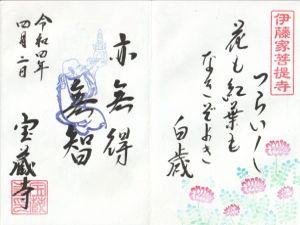 伊藤家菩提寺
花も紅葉も
なきぞよき
白歳
亦無得
無智
令和四年
四月二日
宝蔵寺